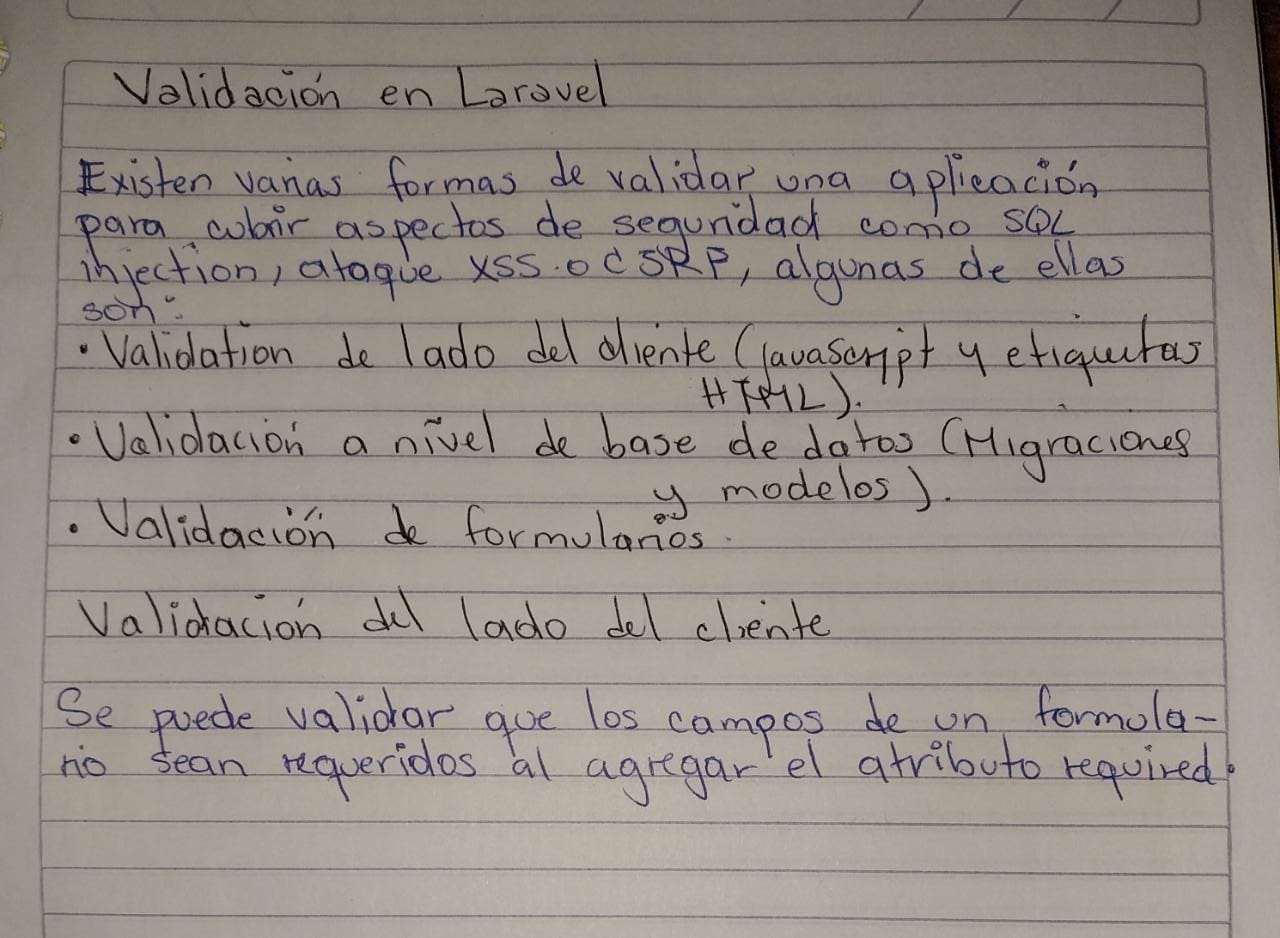 Validación en Laravel
Existen varias formas de validar una aplicación
para cubrir aspectos de seguridad como SQL
injection, ataque XSS o CSRP, algunas de ellas
son:
• Validation de lado del cliente (JavaScript y etiquetas
HTML).
• Validación a nivel de base de datos (Migraciones
y modelos).
• Validación de formularios.
Validación del lado del cliente
Se puede validar que los campos de un formula-
rio sean requeridos al agregar el atributo required.